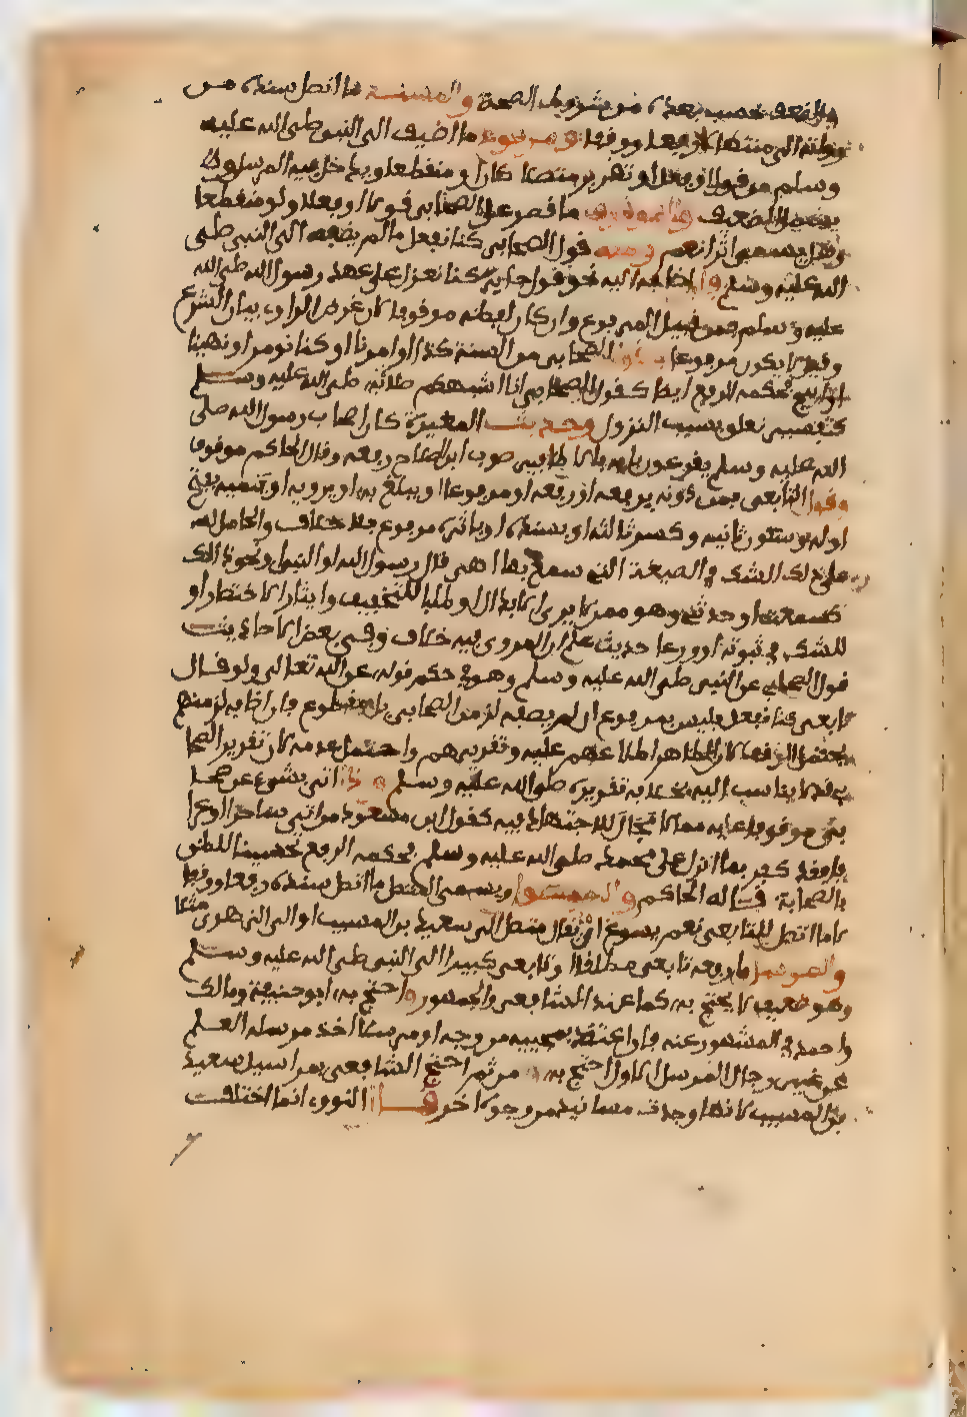 بالضعف بحسب بعده من شروط الصحة والمسند ما اتصل سنده من
رواته الى منتهاه رفعا ووقفا والمرفوع ما اضيف الى النبي صلى الله عليه
وسلم من قول او فعل او تقرير متصلا كان او منقطعا ويدخل فيه المرسل و
يشمل الضعيف والموقوف ما قصر على الصحابي قولا او فعلا ولو منقطعا
وهل يسمى اثرا نعم ومنه قول الصحابي كنا نفعل ما لم يضفه الى النبي صلى
الله عليه وسلم فان اضافه اليه نحو قول جابر كنا نعزل على عهد رسول الله صلى الله
عليه وسلم فمن قبيل المرفوع وان كان لفظه موقوفا لان غرض الراوي بيان الشرع
وقيل لا يكون مرفوعا وقول الصحابي من السنة كذا او امرنا او كنا نومر او نهينا
او ابيح فحكمه الرفع ايضا كقول الصحابي انا اشبهكم صلاة به صلى الله عليه وسلم
كتفسير تعلق بسبب النزول وحديث المغيرة كان اصحاب رسول الله صلى
الله عليه وسلم يقرعون بابه بالاظافير صوب ابن الصلاح رفعه وقال الحاكم موقوف
وقول التابعي فمن دونه يرفعه او رفعه او مرفوعا او يبلغ به او يرويه او ينميه بفتح
اوله وسكون ثانيه وكسر ثالثه او يسنده او ياثره مرفوع بلا خلاف والحامل له
على ذلك الشك في الصيغة التي سمع بها اهي قال رسول الله او النبي او نحو ذلك
كسمعت او حدثني وهو ممن لا يرى الابدال او طلبا للتخفيف وايثارا للاختصار او
للشك في ثبوته او ورعا حيث علم ان المروي فيه خلاف وفي بعض الاحاديث
قول الصحابي عن النبي صلى الله عليه وسلم وهو في حكم قوله عن الله تعالى ولو قال
تابعي كنا نفعل فليس بمرفوع ان لم يضفه لزمن الصحابي بل مقطوع فان اضافه لزمنهم
احتمل الوقف لان الظاهر اطلاعهم عليه وتقريرهم واحتمل عدمه لان تقرير الصحا
بي قد لا ينسب اليه بخلاف تقريره صلى الله عليه وسلم واذا اتى بشيء عن صحا
بي موقوفا عليه مما لا مجال للاجتهاد فيه كقول ابن مسعود من اتى ساحرا او عرافا
فقد كفر بما انزل على محمد صلى الله عليه وسلم فحكمه الرفع تحسينا للظن
بالصحابة قاله الحاكم والموصول ويسمى المتصل ما اتصل سنده رفعا ووقفا
لا ما اتصل للتابعي نعم يسوغ ان يقال متصل الى سعيد بن المسيب او الى الزهري مثلا
والمرسل ما رفعه تابعي مطلقا او تابعي كبير الى النبي صلى الله عليه وسلم
وهو ضعيف لا يحتج به كما عند الشافعي والجمهور واحتج به ابو حنيفة ومالك
واحمد في المشهور عنه فان اعتضد بمجيئه من وجه اخر مسندا او مرسلا اخذ مرسله العلم
عن غير رجال المرسل الاول احتج به ومن ثم احتج الشافعي بمراسيل سعيد
بن المسيب لانها وجدت مسانيد من وجوه اخر قال النووي انما اختلفت